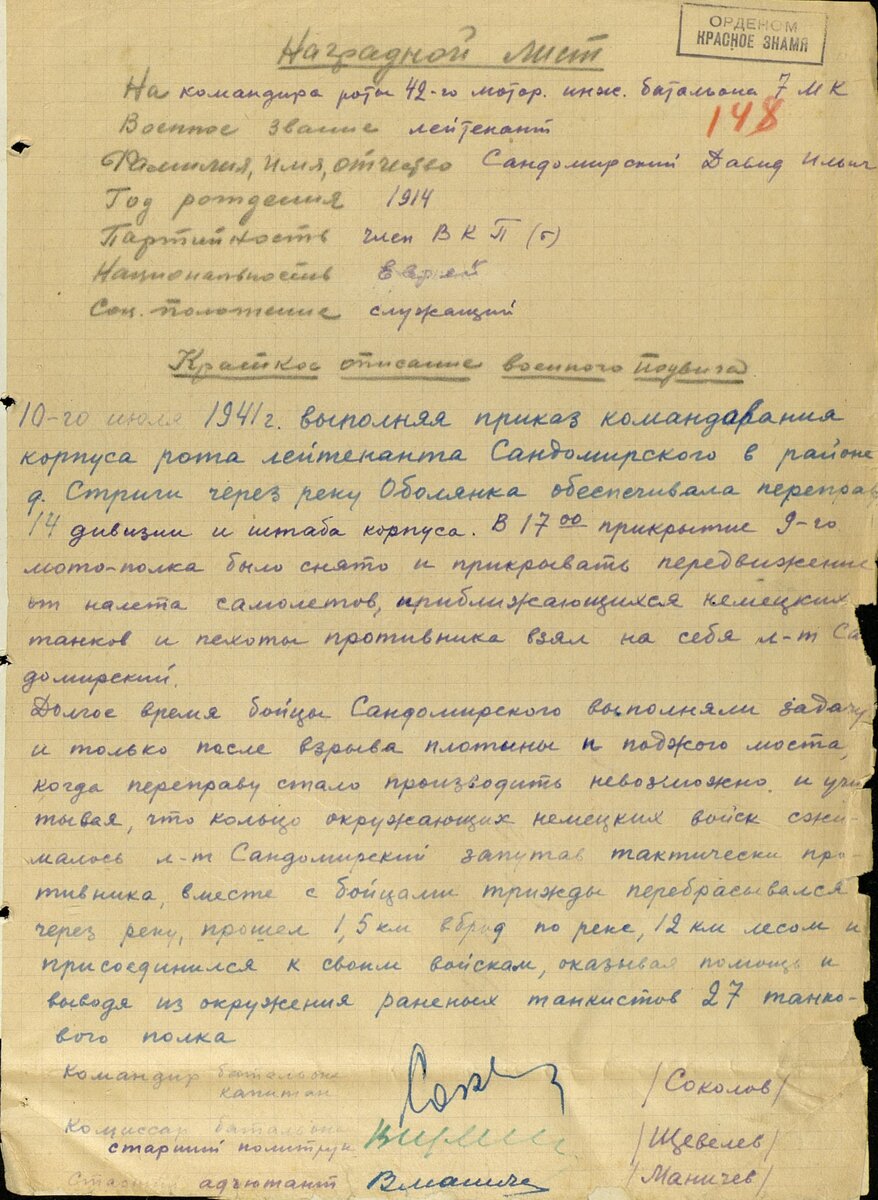 ОРДЕНОМ
КРАСНОЕ ЗНАМЯ
Наградной лист
На командира роты 42-го мотор. инж. батальона 7 МК
148
Военное звание лейтенант
Фамилия, имя, отчество Сандомирский Давид Ильич
Год рождения 1914
Партийность член ВКП(б)
Национальность Еврей
Соц. положение служащий
Краткое описание военного подвига
10-го июля 1941 г. выполняя приказ командавания
корпуса рота лейтенанта Сандомирского в районе
д. Стриги через реку Оболянка обеспечивала переправ
14 дивизии и штаба корпуса. В 17 00 прикрытие 9-го
мото-полка было снято и прикрывать передвижение
от налета самолетов, приближающихся немецких
танков и пехоты противника взял на себя л-т Са
домирский.
Долгое время бойцы Сандомирского выполняли задачу
и только после взрыва плотины и поджога моста,
когда переправу стало производить невозможно и учи
тывая, что кольцо окружающих немецких войск сжи-
малось л-т Сандомирский запутав тактически про-
тивника, вместе с бойцами трижды перебрасывался
через реку, прошел 1,5 км вброд по реке, 12 км лесом и
присоединился к своим войскам, оказывая помощь и
выводя из окружения раненых танкистов 27 танко-
вого полка
Командир батальона
капитан /Соколов/
Комиссар батальона
старший политрук /Щевелев/
Старший адъютант /Маничев/